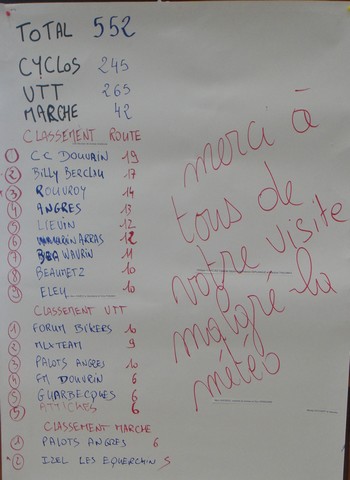 TOTAL 552
CYCLOS 245
VTT 265
MARCHE 42
CLASSEMENT ROUTE
1 CC DOUVRIN 19
2 BILLY BERCLAU 17
3 ROUVROY 14
4 ANGRES 13
5 LIEVIN 12
6 ARRAS 12
7 WAVRIN 11
8 BEAUMETZ 10
9 ELEU 10
CLASSEMENT VTT
1 FORUM BIKERS 10
2 MLXTEAM 9
3 PALOTS ANGRES 10
4 FM DOUVRIN 6
5 GUARBECQUES 6
5 ATTICHES 6
CLASSEMENT MARCHE
1 PALOTS ANGRES 6
2 IZEL LES EQUERCHIN 5
merci à
tous de
votre visite
malgré la
météo